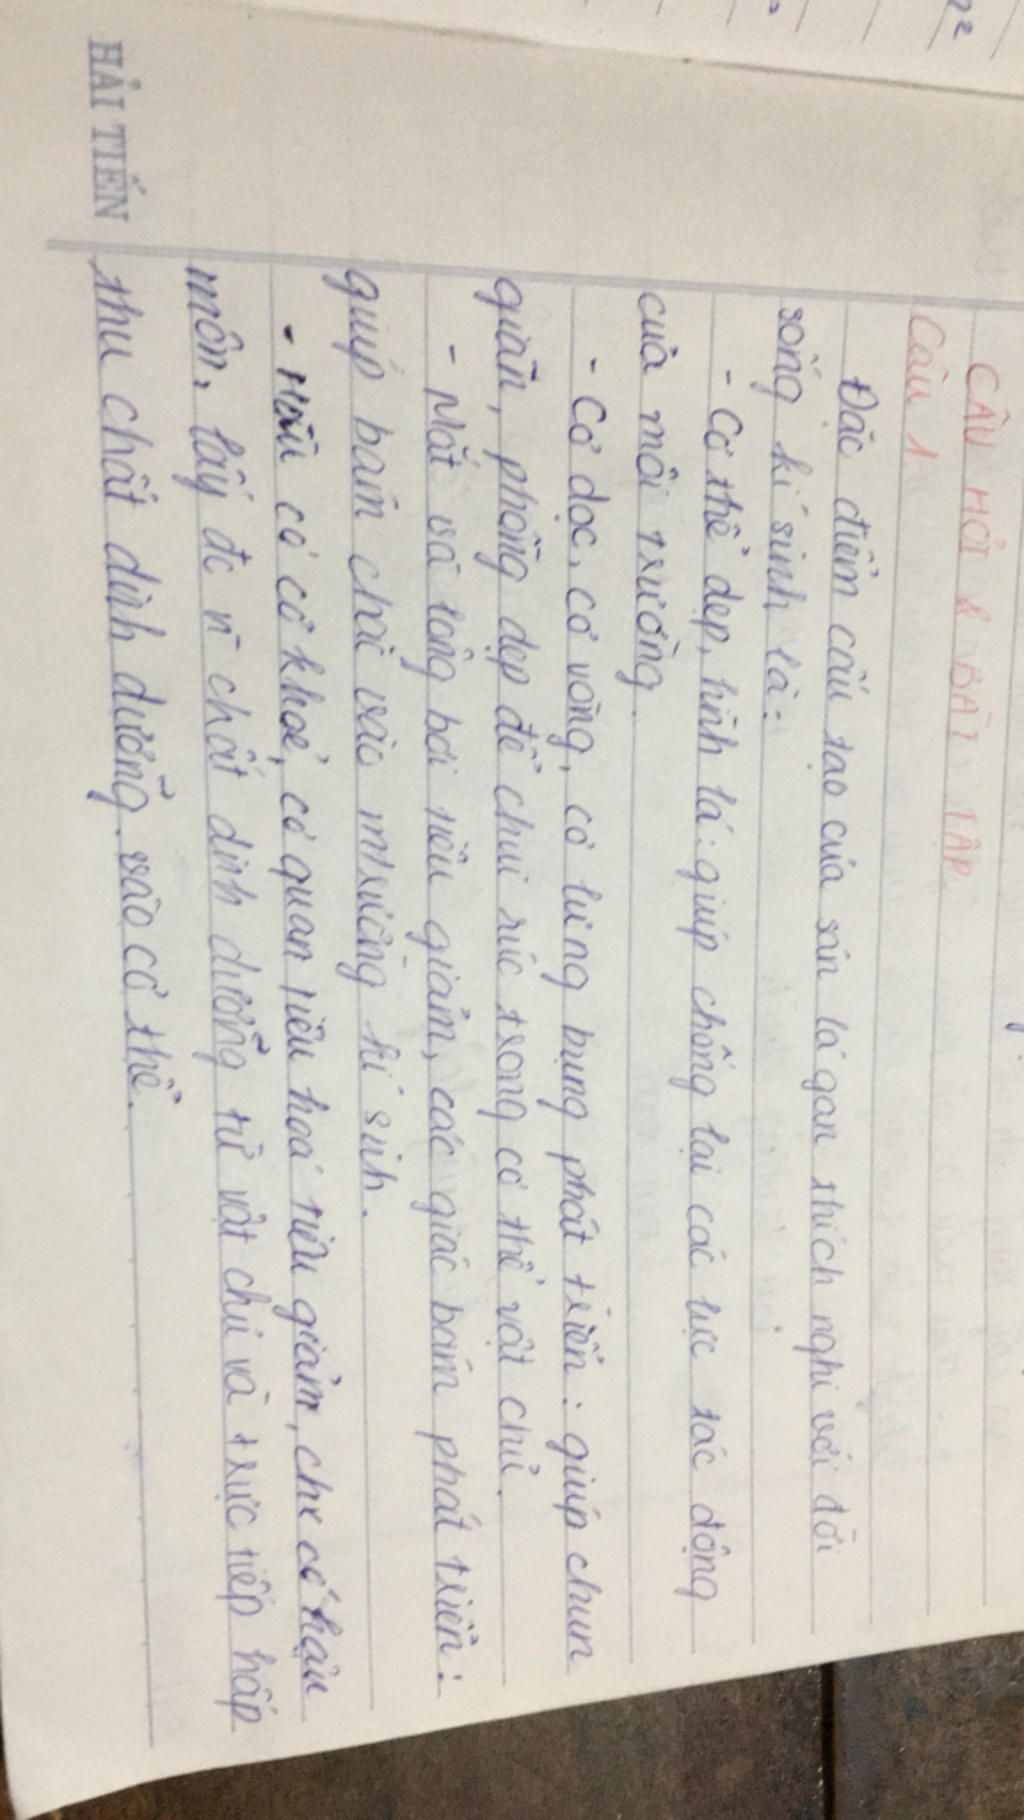 CÂU HỎI & BÀI TẬP
Câu 1.
Đặc điểm cấu tạo của sán lá gan thích nghi với đời
sống kí sinh là:
- Cơ thể dẹp, hình lá: giúp chống lại các lực tác động
của môi trường.
- Cơ dọc, cơ vòng, cơ lưng bụng phát triển: giúp chun
giãn, phồng dẹp để chui rúc trong cơ thể vật chủ.
- Mắt và lông bơi tiêu giảm, các giác bám phát triển:
giúp bám chắc vào mtrường kí sinh.
- Hầu có cơ khoẻ, cơ quan tiêu hoá tiêu giảm, chx có hậu
môn, lấy đc n` chất dinh dưỡng từ vật chủ và trực tiếp hấp
thu chất dinh dưỡng vào cơ thể.
HẢI TIẾN